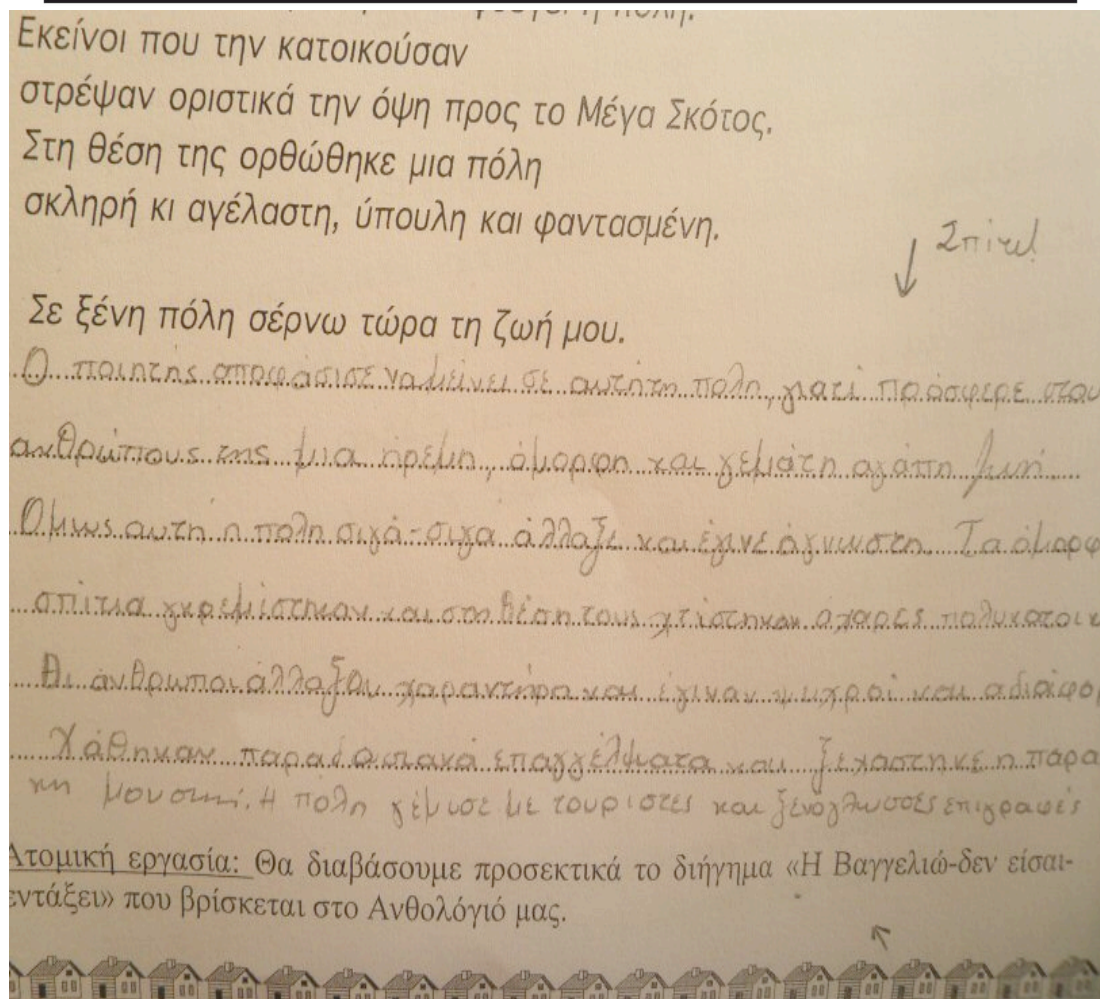 Εκείνοι που την κατοικούσαν
στρέψαν οριστικά την όψη προς το Μέγα Σκότος.
Στη θέση της ορθώθηκε μια πόλη
σκληρή κι αγέλαστη, ύπουλη και φαντασμένη.
Σπίτι!
Σε ξένη πόλη σέρνω τώρα τη ζωή μου.
Ο ποιητής αποφάσισε να μείνει σε αυτή τη πόλη, γιατί πρόσφερε στου
ανθρώπους της μια ήρεμη, όμορφη και γεμάτη αγάπη ζωή.
Όμως αυτή η πολη σιγά-σιγα άλλαξε και έγινε άγνωστη. Τα όμορφ
σπίτια γκρεμίστηκαν και στη θέση τους χτίστηκαν άχαρες πολυκατοικ
Οι άνθρωποι άλλαξαν χαρακτήρα και έγιναν ψυχροί και αδιάφορ
Χάθηκαν παραδοσιακά επαγγέλματα και ξεχαστηκε η παρα
κη μουσική. Η πόλη γέμισε με τουρίστες και ξενόγλωσσες επιγραφές
Ατομική εργασία: Θα διαβάσουμε προσεκτικά το διήγημα «Η Βαγγελιώ-δεν είσαι-
εντάξει» που βρίσκεται στο Ανθολόγιό μας.